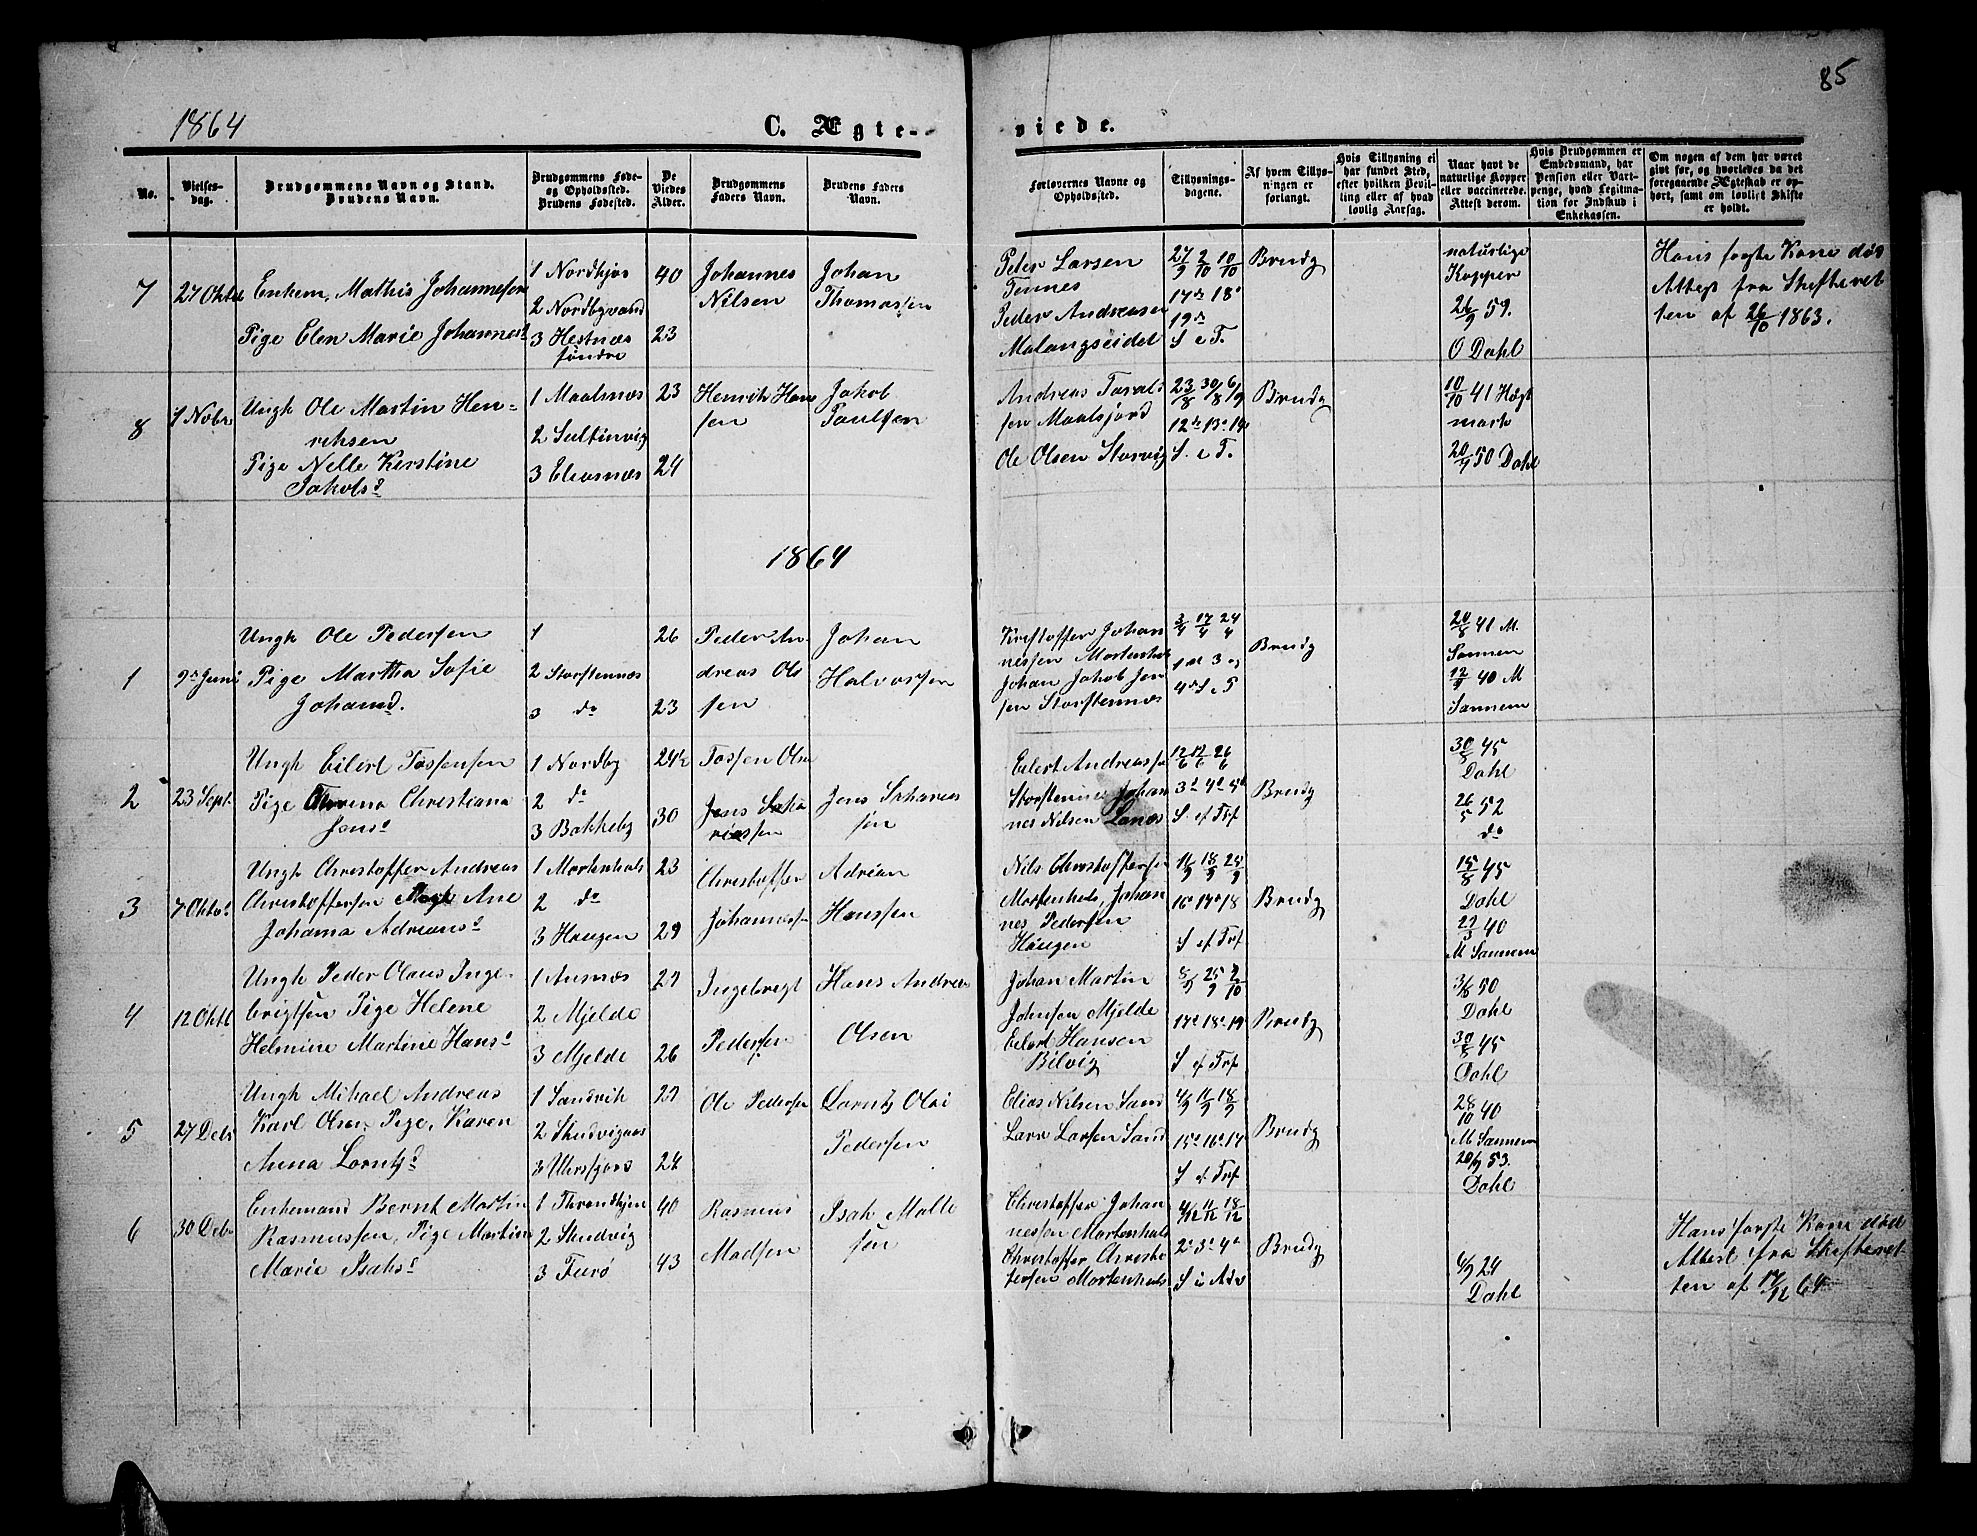 85
1864
C. Ægte-
viede.
No.
Vielses-
dag.
Brudgommens Navn og Stand.
Brudens Navn.
Brudgommens Føde-
og Opholdssted.
Brudens Fødested.
De
Viedes
Alder.
Brudgommens
Faders Navn.
Brudens Faders
Navn.
Forlovernes Navne og
Opholdssted.
Tillysnings-
dagene.
Af hvem Tillys-
ningen er
forlangt.
Hvis Tillysning ei
har fundet Sted,
efter hvilken Bevil-
ling eller af hvad
lovlig Aarsag.
Naar havt de
naturlige Kopper
eller vaccinerede.
Attest derom.
Hvis Brudgommen er
Embedsmand, har
Pension eller Vart-
penge, hvad Legitima-
tion for Indskud i
Enkekassen.
Om nogen af dem har været
gift før, og hvorledes da det
foregaaende Ægteskab er op-
hørt, samt om lovligt Skifte
er holdt.
7
27 Oktbr
Enkem. Mathis Johannesen
Pige Elen Marie Johannesd
1 Nordkjos
2 Nordbyvand
3 Hestnæs
søndre
40
23
Johannes
Nilsen
Johan
Thomassen
Peter Larsen
Tennes
Peder Andreasen
Malangseidet
27/9 2/10 10/10
17de 18de
19de
S e T.
Brudg
naturlige
Kopper
26/9 59.
O Dahl
Hans første Kone død
Attest fra Skifteret
ten af 26/10 1863.
8
1 Nobr
Ungk Ole Martin Hen-
riksen
Pige Nelle Kerstine
Jakobsd
1 Maalsnæs
2 Sultinvig
3 Elvasnæs
23
24
Henrik Han
sen
Jakob
Paulsen
Andreas Tarald
sen Maalsjord
Ole Olsen Storvig
23/8 30/8 6/9
12te 13de 14de
S. e T.
Brudg
10/10 41 Hegt
mark
20/9 50 Dahl
1864
1
9de Juni
Ungk Ole Pedersen
Pige Martha Sofie
Johansd.
1
2 Storstennæs
3 do
26
23
Peder An
dreas Ol
sen
Johan
Halvorsen
Kristoffer Johan
nessen Mortenhals
Johan Jakob Jen
sen Storstennæs
3/4 17/4 24/4
1ste 3 og
4de S e P
Brudg
20/8 41 M.
Sannem
12/9 40 M
Sannem
2
23 Sept.
Ungk Eilert Tossensen
Pige Christiana
Jensd
1 Nordby
2 do
3 Bakkeby
24½
30
Tossen Olse
Jens Saka
riassen
Jens Sakarias
sen
Eilert Andreassen
Storstennes Johan
nes Nilsen Lanæs
12/6 26/6
3de 4de 5te
S. ef Tref
Brudg
30/5 45
Dahl
26/5 52
do
3
7 Oktor
Ungk Christoffer Andreas
Christoffersen Pige Ane
Johama Adriansd
1 Mortenhals
2 do
3 Haugen
23
29
Christoffer
Johannessen
Adrian
Hanssen
Nils Christoffersen
Mortenhals, Johan
nes Pedersen
Haugen
11/9 18/9 25/9
16 17 18
S ef Tref
Brudg
15/8 45
Dahl
22/3 40
M Sannem
4
12 Oktb
Ungk Peder Olaus Inge-
brigtsen Pige Helene
Helmine Martine Hansd
1 Ansnæs
2 Mjelde
3 Mjelde
27
26
Ingebregt
Pedersen
Hans Andreas
Olsen
Johan Martin
Johnsen Mjelde
Eilert Hansen
Bilvig
25/9 2/10
17 18 19
S ef Tref
Brudg
3/8 50
Dahl
30/5 45
Dahl
5
27 Debr
Ungk Mikael Andreas
Karl Olsen, Pige, Karen
Anna Lorntzd
1 Sandvik
2 Skudvignæs
3 Utersjorø
27
24
Ole Pedersen
Lorntz Olai
Pedersen
Elias Nilsen Sand
Larss Larsen Sand
4/9 11/9 18/9
15 16 17
S ef Tref
Brudg
28/10 40
M Sannem
20/9 53.
Dahl
6
30 Debr
Enkemand Bernt Martin
Rasmussen, Pige Martine
Marie Isaksd
1 Throndhjem
2 Skudvig
3 Turø
40
43
Rasmus
Madsen
Isak Malte
sen
Christoffer Johan
nessen Mortenhals
Christoffer Christo
fersen Mortenhals
4/12 11/12 18/12
2 3 4de
S i Adv
Brudg
4/9 24
Dahl
Hans første Kone død
Attest fra Skifteret
ten af 17/12 64